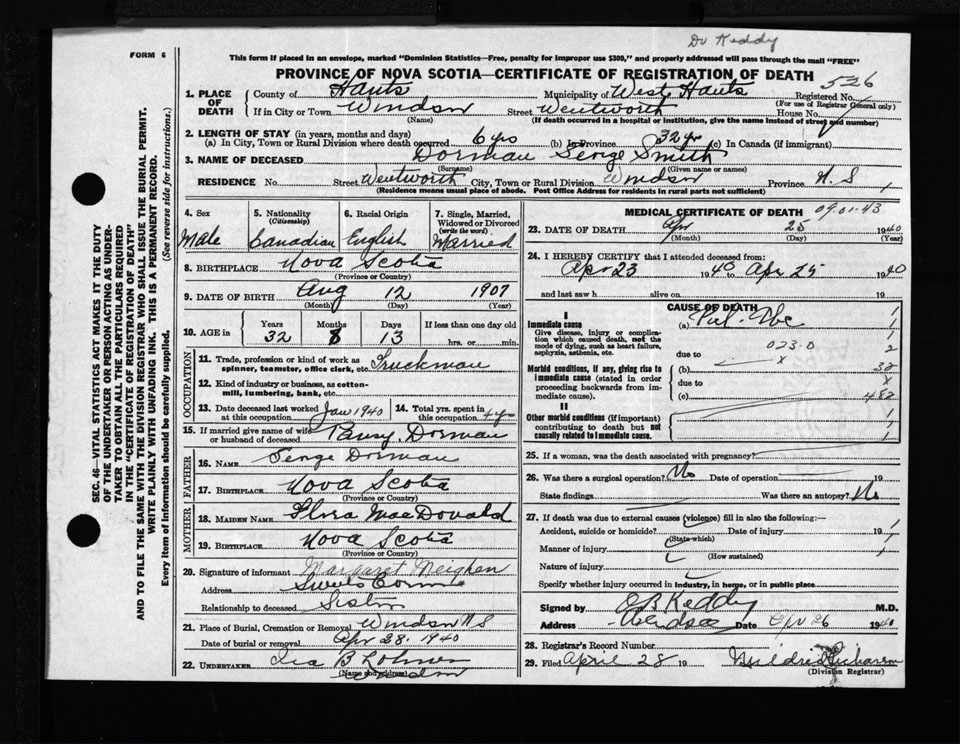 Dr Keddy
FORM 6
This form if placed in an envelope, marked "Dominion Statistics—Free, penalty for improper use $300," and properly addressed will pass through the mail "FREE"
PROVINCE OF NOVA SCOTIA—CERTIFICATE OF REGISTRATION OF DEATH
526
1. PLACE OF DEATH County of Hants Municipality of West Hants Registered No.
(For use of Registrar General only)
If in City or Town Windsor Street Wentworth House No.
(Name) (If death occurred in a hospital or institution, give the name instead of street and number)
2. LENGTH OF STAY (in years, months and days)
(a) In City, Town or Rural Division where death occurred 6 yrs (b) In Province 32 yr (c) In Canada (if immigrant)
3. NAME OF DECEASED Dorman Smith
(Surname) (Given name or names)
RESIDENCE No. Street Wentworth City, Town or Rural Division Windsor Province N.S
(Residence means usual place of abode. Post Office Address for residents in rural parts not sufficient)
SEC. 46—VITAL STATISTICS ACT MAKES IT THE DUTY
OF THE UNDERTAKER OR PERSON ACTING AS UNDER-
TAKER TO OBTAIN ALL THE PARTICULARS REQUIRED
IN THE "CERTIFICATE OF REGISTRATION OF DEATH"
AND TO FILE THE SAME WITH THE DIVISION REGISTRAR WHO SHALL ISSUE THE BURIAL PERMIT.
WRITE PLAINLY WITH UNFADING INK. THIS IS A PERMANENT RECORD.
Every item of information should be carefully supplied. (See reverse side for instructions.)
4. Sex Male
5. Nationality (Citizenship) Canadian
6. Racial Origin English
7. Single, Married, Widowed or Divorced (write the word) Married
8. BIRTHPLACE Nova Scotia
(Province or Country)
9. DATE OF BIRTH Aug 12 1907
(Month) (Day) (Year)
10. AGE in Years 32 Months 8 Days 13 If less than one day old hrs. or min.
OCCUPATION
11. Trade, profession or kind of work as spinner, teamster, office clerk, etc. Truckman
12. Kind of industry or business, as cotton-mill, lumbering, bank, etc.
13. Date deceased last worked at this occupation Jan 1940
14. Total yrs. spent in this occupation 4 yrs
15. If married give name of wife or husband of deceased Pansy Dorman
FATHER
16. NAME Dorman
17. BIRTHPLACE Nova Scotia
(Province or Country)
MOTHER
18. MAIDEN NAME Flora MacDonald
19. BIRTHPLACE Nova Scotia
(Province or Country)
20. Signature of informant Margaret Meighen
Address Sweets Corner
Relationship to deceased Sister
21. Place of Burial, Cremation or Removal Windsor NS
Date of burial or removal Apr 28. 1940
22. UNDERTAKER Ira B Lohnes
Windsor
(Name and address)
MEDICAL CERTIFICATE OF DEATH 09.01.43
23. DATE OF DEATH Apr 25 1940
(Month) (Day) (Year)
24. I HEREBY CERTIFY that I attended deceased from:
Apr 23 1940 to Apr 25 1940
and last saw h alive on 19
CAUSE OF DEATH
I
Immediate cause
Give disease, injury or complication which caused death, not the mode of dying, such as heart failure, asphyxia, asthenia, etc.
(a) Pul. Tbc
due to 023.0
Morbid conditions, if any, giving rise to immediate cause (stated in order proceeding backwards from immediate cause).
(b)
due to
(c)
II
Other morbid conditions (if important) contributing to death but not causally related to immediate cause.
1
1
2
32
x
482
1
1
25. If a woman, was the death associated with pregnancy?
26. Was there a surgical operation? No Date of operation 19
State findings Was there an autopsy? No
27. If death was due to external causes (violence) fill in also the following:—
Accident, suicide or homicide? Date of injury 19
(State which)
Manner of injury
(How sustained)
Nature of injury
Specify whether injury occurred in industry, in home, or in public place
Signed by E B Keddy M.D.
Address Windsor Date Apr 26 1940
28. Registrar's Record Number
29. Filed April 28 19
(Division Registrar)